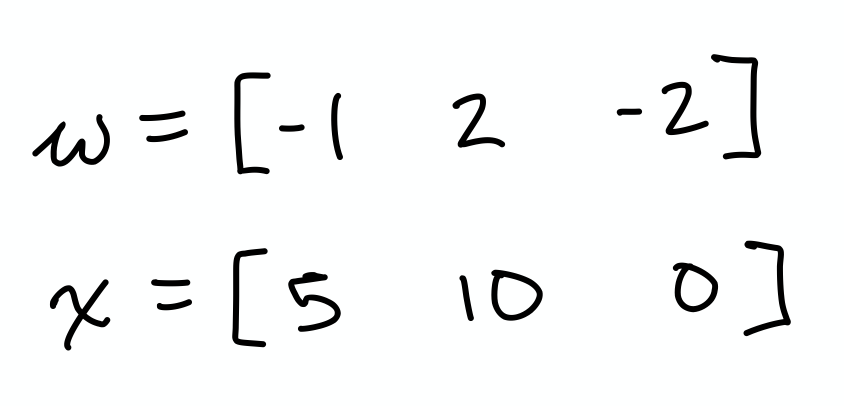 w = [-1 2 -2]
x = [5 10 0]